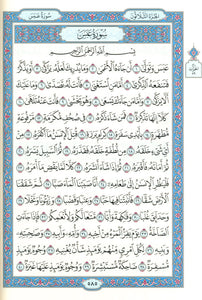 الجزء الثلاثون سورة عبس
سورة عبس
بسم الله الرحمن الرحيم
عبس وتولى ١ أن جاءه الأعمى ٢ وما يدريك لعله يزكى ٣ أو يذكر
فتنفعه الذكرى ٤ أما من استغنى ٥ فأنت له تصدى ٦ وما عليك
ألا يزكى ٧ وأما من جاءك يسعى ٨ وهو يخشى ٩ فأنت عنه تلهى
١٠ كلا إنها تذكرة ١١ فمن شاء ذكره ١٢ في صحف مكرمة ١٣ مرفوعة
مطهرة ١٤ بأيدي سفرة ١٥ كرام بررة ١٦ قتل الإنسان ما أكفره ١٧
من أي شيء خلقه ١٨ من نطفة خلقه فقدره ١٩ ثم السبيل يسره
٢٠ ثم أماته فأقبره ٢١ ثم إذا شاء أنشره ٢٢ كلا لما يقض ما أمره ٢٣
فلينظر الإنسان إلى طعامه ٢٤ أنا صببنا الماء صبا ٢٥ ثم شققنا
الأرض شقا ٢٦ فأنبتنا فيها حبا ٢٧ وعنبا وقضبا ٢٨ وزيتونا ونخلا ٢٩
وحدائق غلبا ٣٠ وفاكهة وأبا ٣١ متاعا لكم ولأنعامكم ٣٢ فإذا
جاءت الصاخة ٣٣ يوم يفر المرء من أخيه ٣٤ وأمه وأبيه ٣٥ وصاحبته
وبنيه ٣٦ لكل امرئ منهم يومئذ شأن يغنيه ٣٧ وجوه يومئذ
مسفرة ٣٨ ضاحكة مستبشرة ٣٩ ووجوه يومئذ عليها غبرة ٤٠
٥٨٥